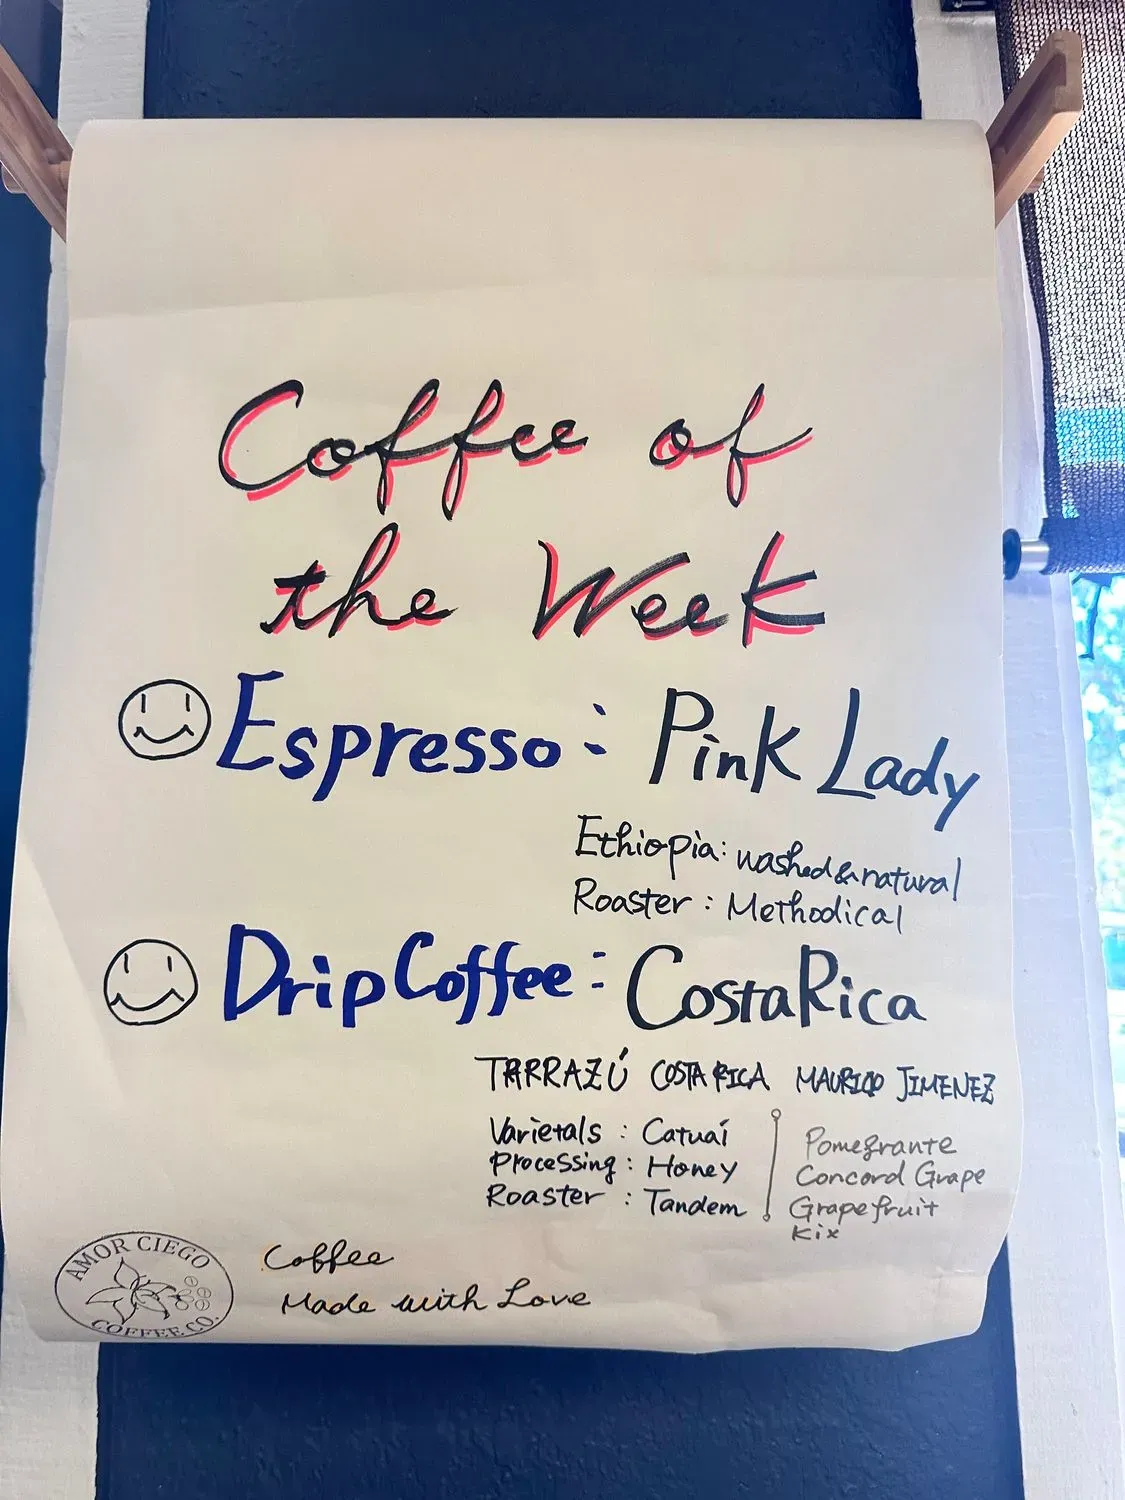 Coffee of
the Week
Espresso: Pink Lady
Ethiopia: washed & natural
Roaster: Methodical
Drip Coffee: Costa Rica
TARRAZÚ COSTA RICA MAURICIO JIMENEZ
Varietals : Catuaí
Processing: Honey
Roaster : Tandem
Pomegrante
Concord Grape
Grapefruit
Kix
AMOR CIEGO
COFFEE CO.
Coffee
Made with Love